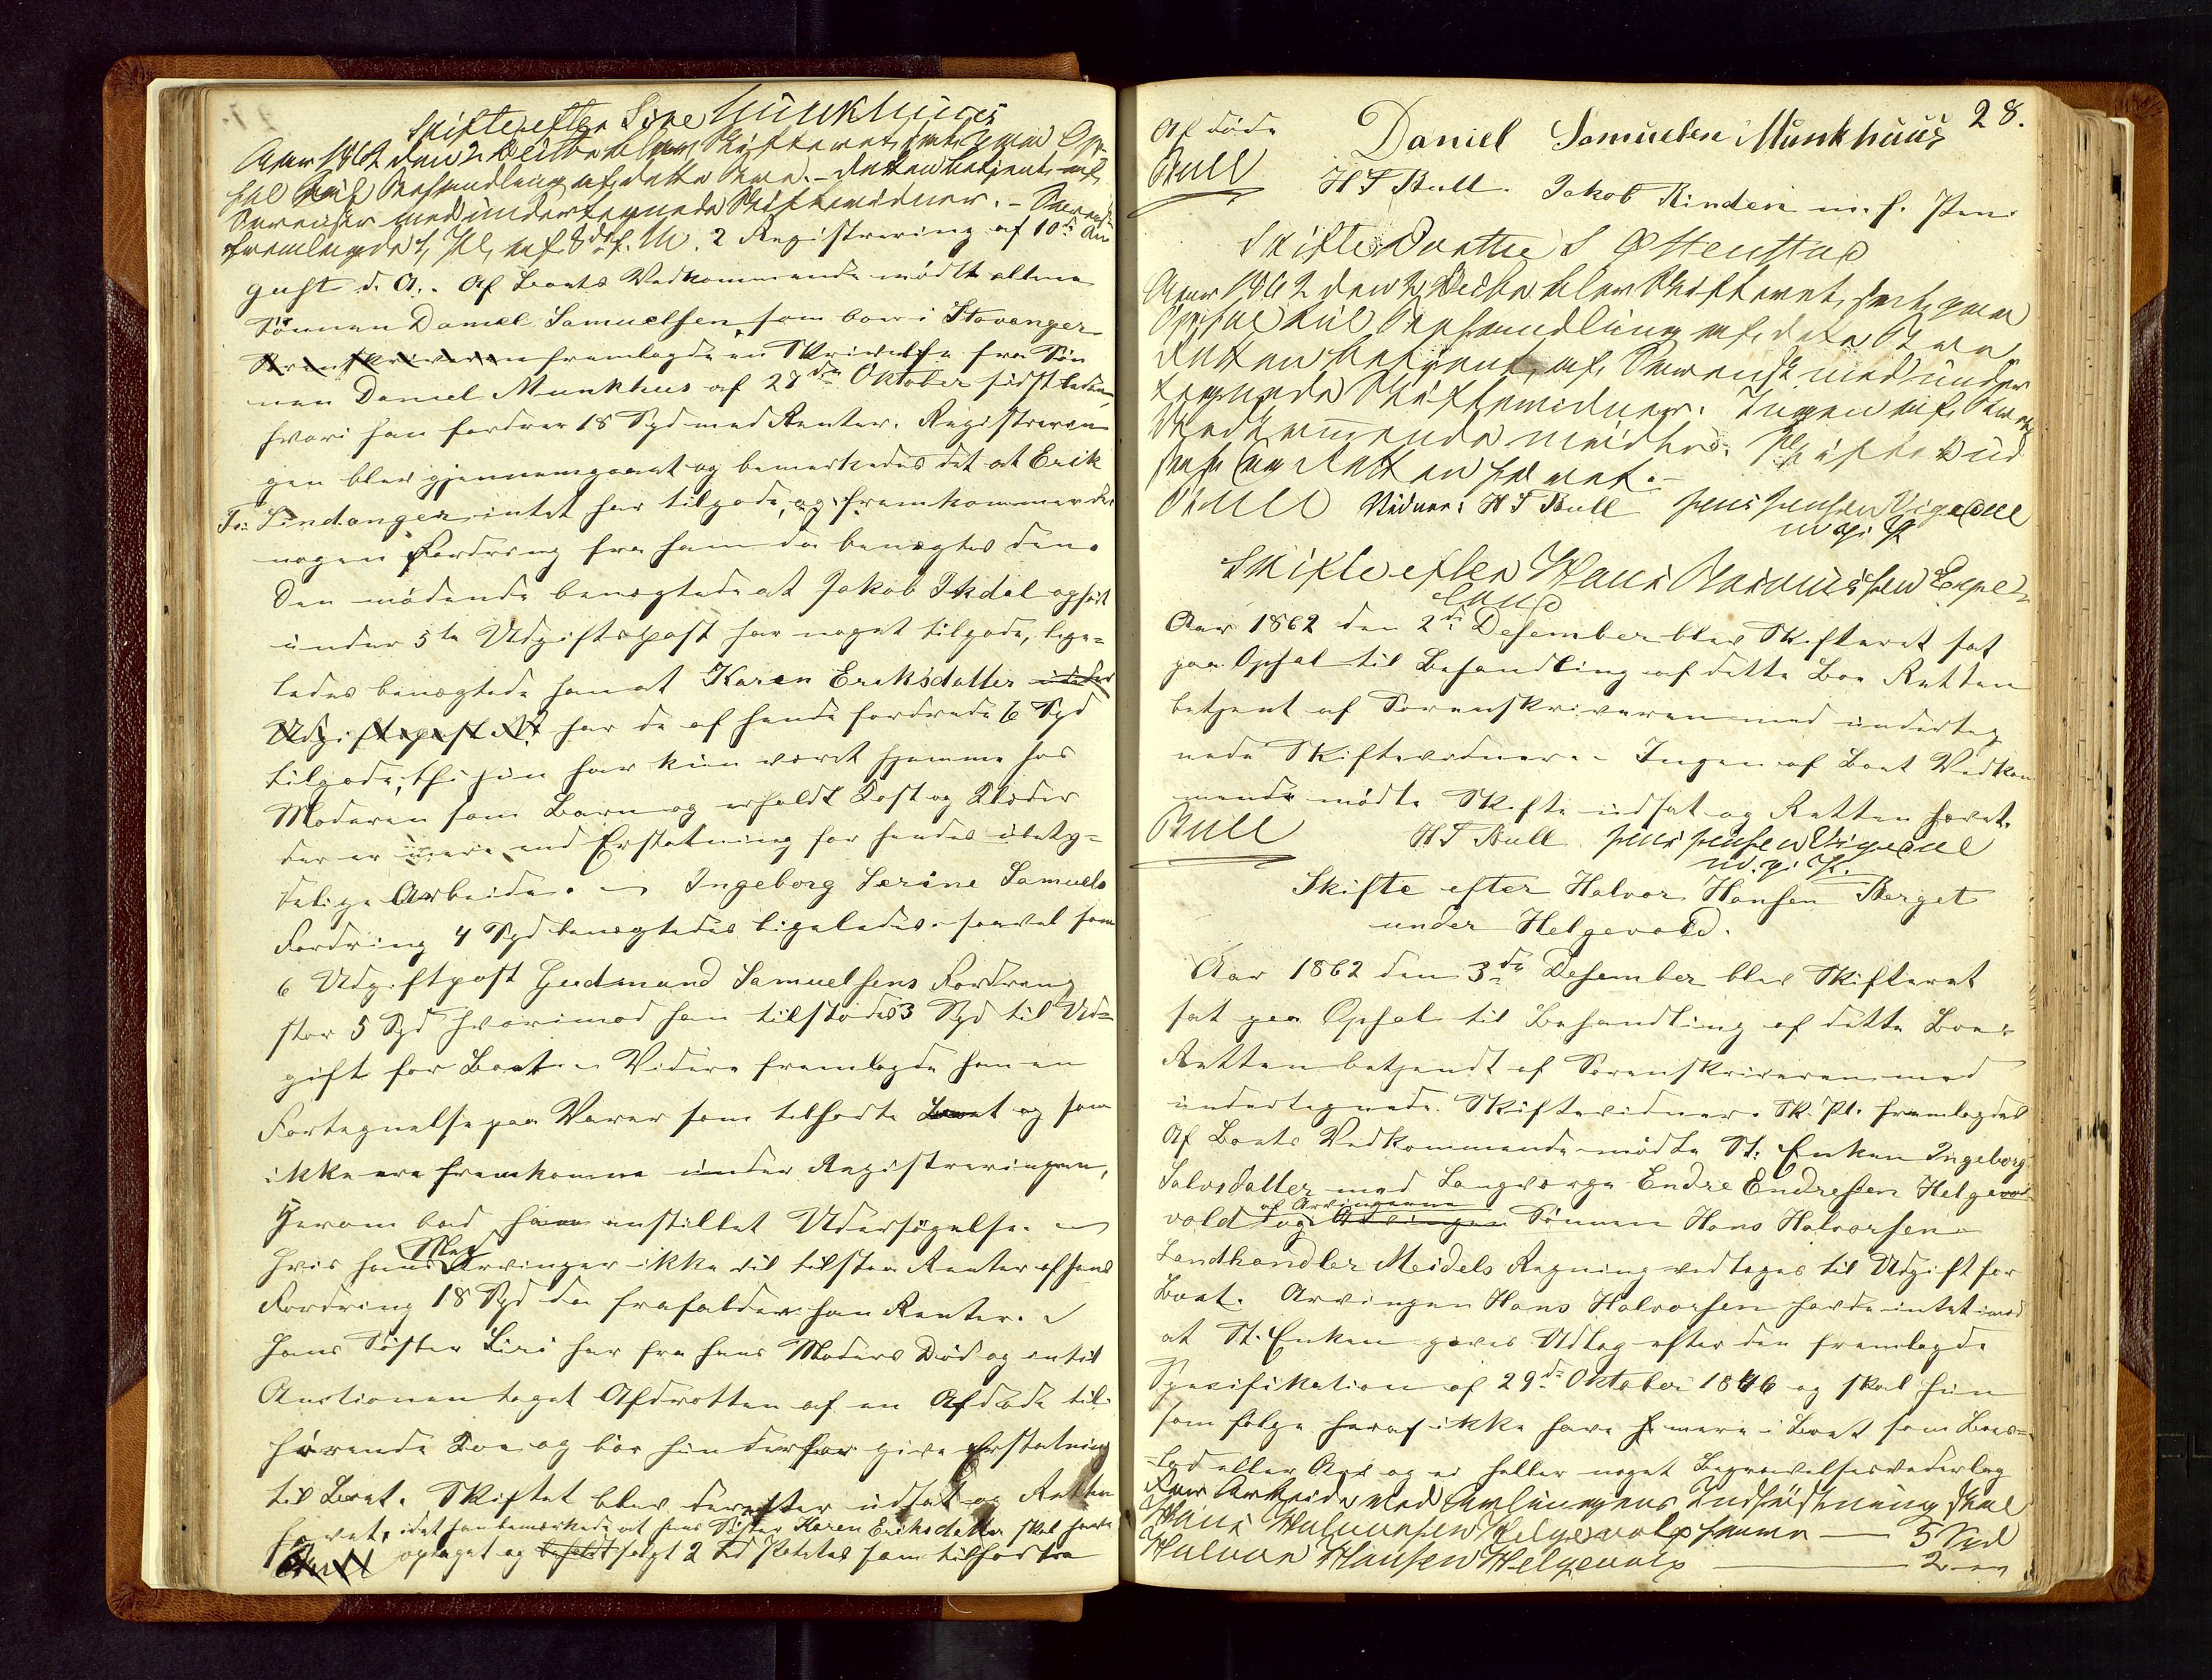 Skifte efter Sire Munkhuus
Aar 1862 den 2 Desembr blev Skifteret sat paa Op-
sal til Behandling af dette Boe. – Retten betjent af
Sorenskr med undertegnede Skiftevidner. –
fremlagdes Pl, af 2 Registrering af 10de Au
gust d. A. - Af Boets Vedkommende mødte alene
Sønnen Daniel Samuelsen, som boer i Stavanger
Sorenskriveren fremlagde en Skrivelse fra Søn
nen Daniel Munkhus af 28de Oktober sidstleden,
hvori han fordrer 18 Spd med Renter. Registrerin
gen blev gjennemgaaet og bemærkedes det at Erik
T: Lindanger intet har tilgode, og fremkommer der
nogen Fordring fra ham da benægtes den.
Den mødende benægtede at Jakob Ikdal opført
under 5te Udgiftspost har noget tilgode, lige-
ledes benægtede han at Karen Eriksdatter
Udgiftspost No har de af hende fordrede 6 Spd
tilgode, thi hun har kun været hjemme hos
Moderen som Barn og erholdt Kost og Klæder
der er mere end Erstatning for hendes ubety-
delige Arbeide. – Ingeborg Serine Samuels
Fordring 4 Spd benægtedes ligeledes saavel som
6 Udgiftpost Gudmund Samuelsens Fordring
stor 5 Spd hvorimod han tilstodes 3 Spd til Ud-
gift for Boet. – Videre fremlagde han en
Fortegnelse paa Varer som tilhørte Boet og som
ikke ere fremkomne under Registreringen,
Herom bad han anstillet Undersøgelse. –
Hvis hans Med Arvinger ikke vil tilstaa Renter af hans
Fordring 18 Spd da frafalder han Renter. –
Hans Søster Siri har fra hans Moders Død og indtil
Auctionen taget Afdrotten af en Afdøde til-
hørende Koe og bør hun derfor give Erstatning
til Boet. Skiftet blev derefter udsat og Retten
hævet, idet han bemærkede at hans Søster Karen Eriksdatter skal have
Bull optaget og solgt 2 Td Potetes som tilhørte
28.
Af døde
Daniel Samuelsen Munkhuus
Bull
H T Bull. Jakob Rinden m. f. Pen
Skifte Dorthe S Østenstad
Aar 1862 den 2 Desbr blev Skifteret sat paa
Opsal til Behandling af dette Boe,
Retten betjent af Sorenskr. med under
tegnede Skiftevidner. Ingen af Boets
Vedkommende mødte. Skiftet ud
sat og Retten hævet. –
Bull Vidner: H T Bull Jens Jensen Vigedal
m. p. P.
Skifte efter Hans Rasmussen Espe-
land
Aar 1862 den 2de Desember blev Skifteret sat
paa Opsal til Behandling af dette Boe Retten
betjent af Sorenskriveren med underteg
nede Skiftevidner. - Ingen af Boet Vedkom
mende mødte Skifte udsat og Retten hævet.
Bull
H T Bull Jens Jensen Vigedal
m. p. P.
Skifte efter Halvor Hansen Berget
under Helgevold.
Aar 1862 den 3de Desember blev Skifteret
sat paa Opsal til Behandling af dette Boe.
Retten betjendt af Sorenskriveren med
undertegnede Skiftevidner. Sk. Pl. fremlagdes
Af Boets Vedkommende mødte St: Enken Ingeborg
Salvesdatter med Laugværge Endre Endresen Helge
vold og af Arvingerne Sønnen Hans Halvorsen.
Landhandler Meidels Regning vedtages til Udgift for
Boet. Arvingen Hans Halvorsen havde intet imod
at St. Enken gaves Udlæg efter den fremlagde
Spesifikation af 29de Oktober 1846 og skal hun
som følge heraf ikke have mere i Boet som Boes-
-lod eller Arv og ei heller noget Begravelsesvederlag
For Arbeide ved Avlingens Indhøstning skal
Hans Halvorsen Helgevold have — 5 Spd
Halvor Hansen Helgevold — 2 –